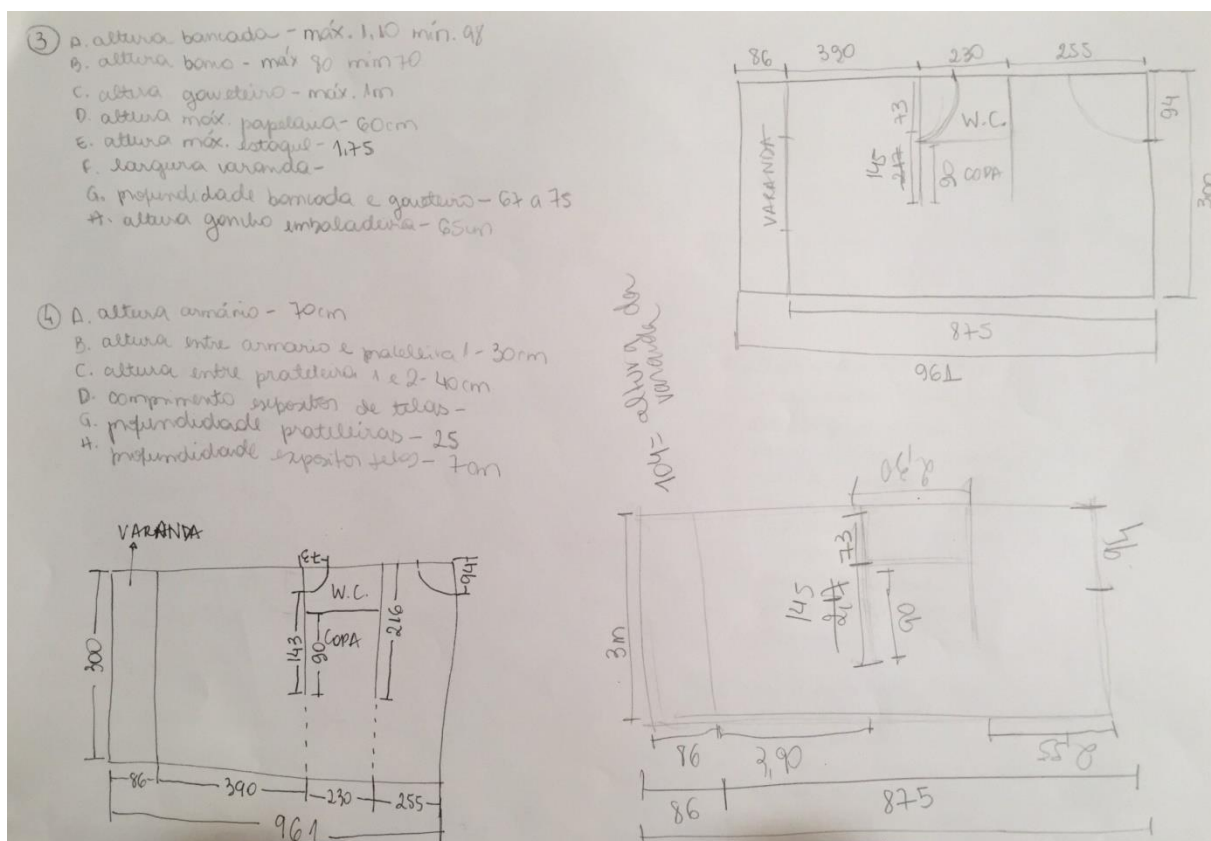 ③ A. altura bancada - máx. 1,10 mín. 98
B. altura banco - máx 80 min 70
C. altura gaveteiro - máx. 1m
D. altura máx. papelaria - 60cm
E. altura máx. estoque - 1,75
F. largura varanda -
G. profundidade bancada e gaveteiro - 67 a 75
H. altura gancho embaladeira - 65cm
④ A. altura armário - 70cm
B. altura entre armario e prateleira 1 - 30cm
C. altura entre prateleira 1 e 2 - 40cm
D. comprimento expositor de telas -
G. profundidade prateleiras - 25
H. profundidade expositor telas - 7cm
86 390 230 255
VARANDA
73
W.C.
94
145
217
90 COPA
300
875
961
104 = altura da varanda
VARANDA
73
94
W.C.
300
143
90
COPA
216
86 390 230 255
961
2,30
73
94
145
2,17
90
3m
86 3,90 2,55
86 875